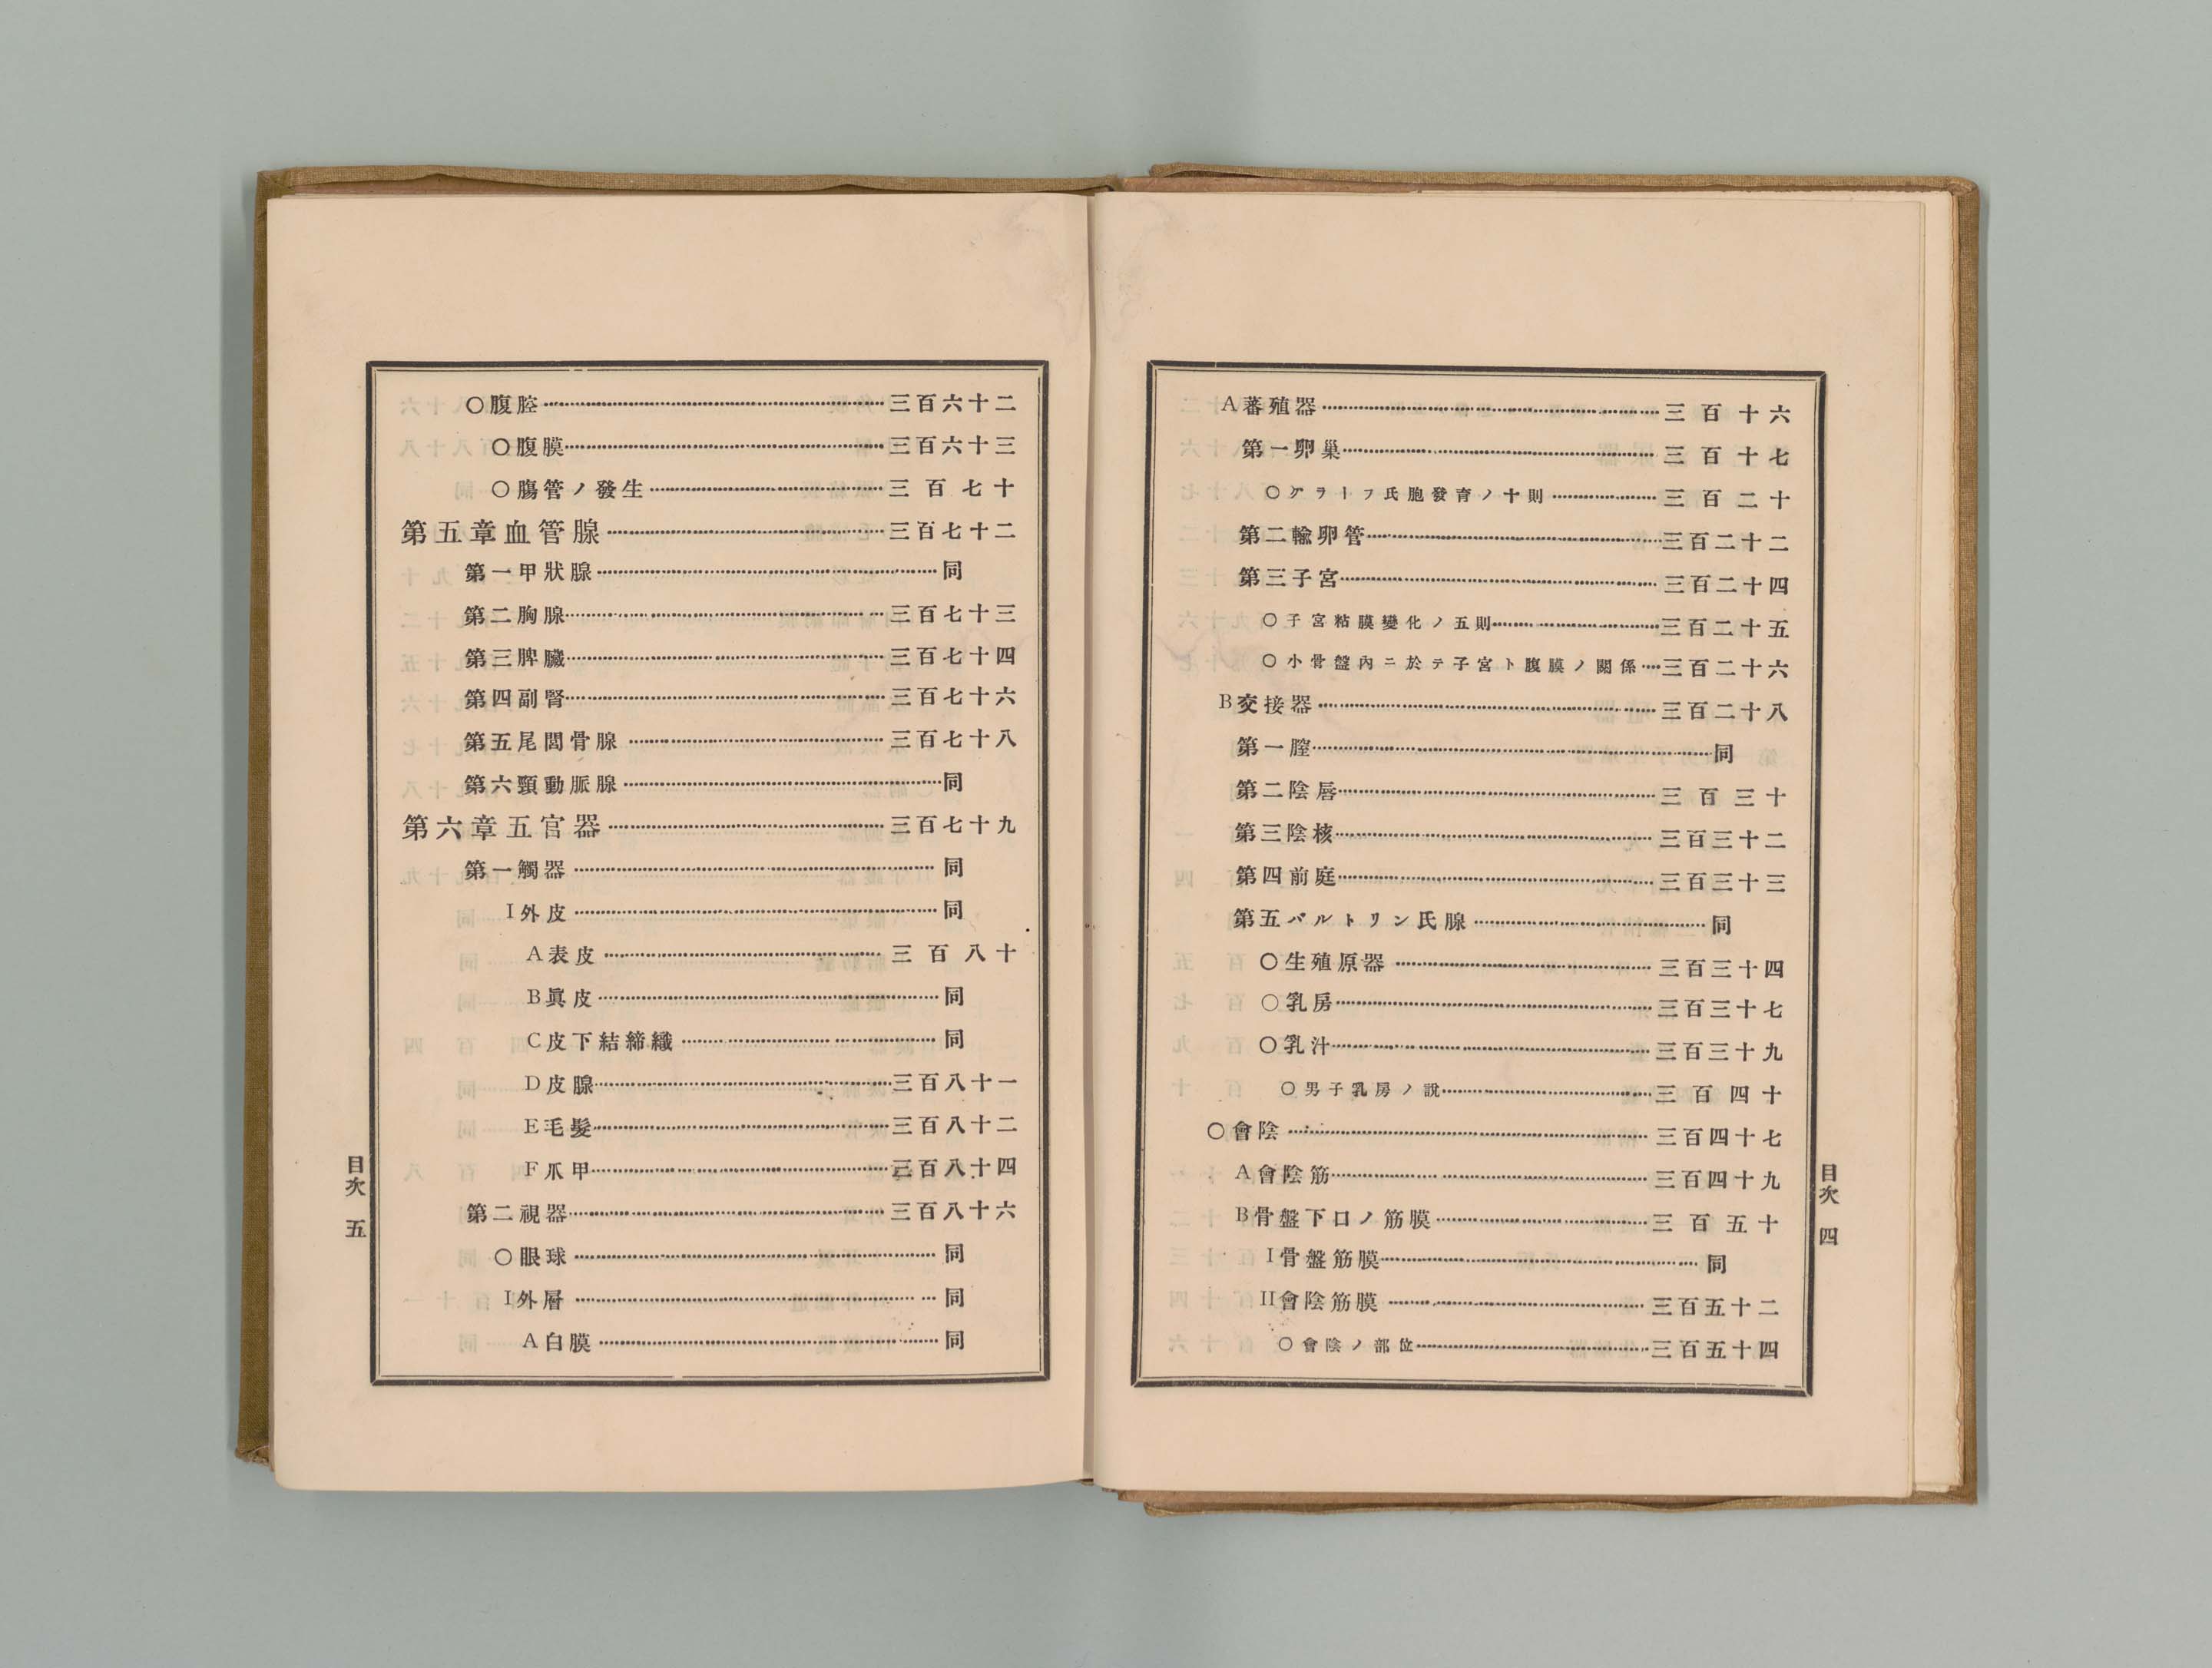 A蕃殖器……三百十六
第一卵巢……三百十七
○グラーフ氏胞發育ノ十則……三百二十
第二輸卵管……三百二十二
第三子宮……三百二十四
○子宮粘膜變化ノ五則……三百二十五
○小骨盤內ニ於テ子宮ト腹膜ノ關係……三百二十六
B交接器……三百二十八
第一膣……同
第二陰唇……三百三十
第三陰核……三百三十二
第四前庭……三百三十三
第五バルトリン氏腺……同
○生殖原器……三百三十四
○乳房……三百三十七
○乳汁……三百三十九
○男子乳房ノ說……三百四十
○會陰……三百四十七
A會陰筋……三百四十九
B骨盤下口ノ筋膜……三百五十
I骨盤筋膜……同
II會陰筋膜……三百五十二
○會陰ノ部位……三百五十四
目次 四
○腹腔……三百六十二
○腹膜……三百六十三
○膓管ノ發生……三百七十
第五章血管腺……三百七十二
第一甲狀腺……同
第二胸腺……三百七十三
第三脾臟……三百七十四
第四副腎……三百七十六
第五尾閭骨腺……三百七十八
第六頸動脈腺……同
第六章五官器……三百七十九
第一觸器……同
I外皮……同
A表皮……三百八十
B眞皮……同
C皮下結締織……同
D皮腺……三百八十一
E毛髮……三百八十二
F爪甲……三百八十四
第二視器……三百八十六
○眼球……同
I外層……同
A白膜……同
目次 五